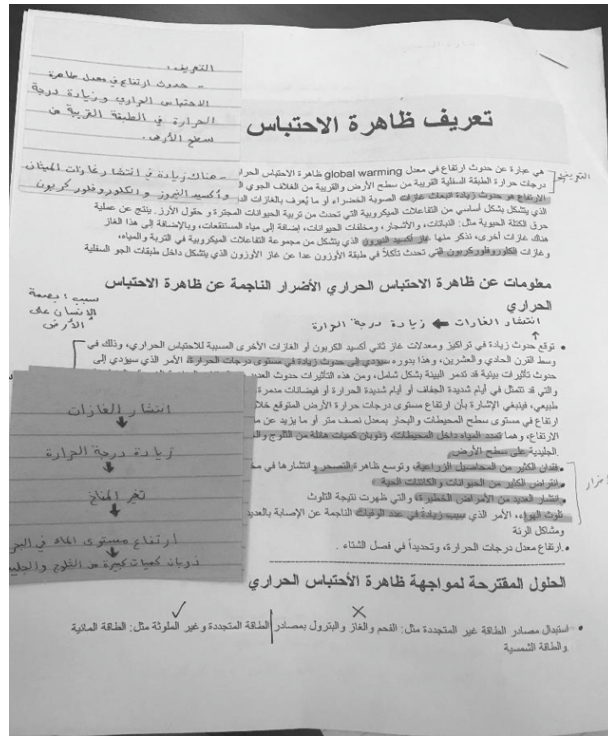 التعريف :
- حدوث ارتفاع في معدل ظاهرة
الاحتباس الحراري وزيادة درجة
الحرارة في الطبقة القريبة من
سطح الأرض.
- هناك زيادة في انتشار غازات الميثان
وأكسيد النيروز والكلوروفلوركربون
تعريف ظاهرة الاحتباس
التعريف
هي عبارة عن حدوث ارتفاع في معدل global warming ظاهرة الاحتباس الحرار
درجات حرارة الطبقة السفلية القريبة من سطح الأرض والقريبة من الغلاف الجوي
الارتفاع هو حدوث زيادة انبعاث غازات الصوبة الخضراء او ما يُعرف بالغازات الد
الذي يتشكل بشكل أساسي من التفاعلات الميكروبية التي تحدث من تربية الحيوانات المجترة و حقول الأرز. ينتج عن عملية
حرق الكتلة الحيوية مثل: النباتات، والأشجار، ومخلفات الحيوانات، إضافة إلى مياه المستنقعات، وبالإضافة إلى هذا الغاز
هناك غازات أخرى، نذكر منها غاز أكسيد النيروز الذي يتشكل من مجموعة التفاعلات الميكروبية في التربة والمياه،
وغازات الكلوروفلوركربون التي تحدث تآكلاً في طبقة الأوزون عدا عن غاز الأوزون الذي يتشكل داخل طبقات الجو السفلية
معلومات عن ظاهرة الاحتباس الحراري الأضرار الناجمة عن ظاهرة الاحتباس
الحراري
سبب : بصمة
الإنسان على
الأرض
انتشار الغازات ← زيادة درجة الحرارة
• توقع حدوث زيادة في تراكيز ومعدلات غاز ثاني أكسيد الكربون أو الغازات الأخرى المسببة للاحتباس الحراري، وذلك في
وسط القرن الحادي والعشرين، وهذا بدوره سيؤدي إلى حدوث زيادة في مستوى درجات الحرارة، الأمر الذي سيؤدي إلى
حدوث تأثيرات بيئية قد تدمر البيئة بشكل شامل، ومن هذه التأثيرات حدوث
والتي قد تتمثل في أيام شديدة الجفاف أو أيام شديدة الحرارة أو فيضانات مدمرة
طبيعي، فينبغي الإشارة بأن ارتفاع مستوى درجات حرارة الأرض المتوقع خلا
ارتفاع في مستوى سطح المحيطات والبحار بمعدل نصف متر أو ما يزيد عن
الارتفاع، وهما تمدد المياه داخل المحيطات، وذوبان كميات هائلة من الثلوج
الجليدية على سطح الأرض.
• فقدان الكثير من المحاصيل الزراعية، وتوسع ظاهرة التصحر وانتشارها في
• انقراض الكثير من الحيوانات والكائنات الحية
• انتشار العديد من الأمراض الخطيرة، والتي ظهرت نتيجة التلوث
تلوث الهواء، الأمر الذي سبب زيادة في عدد الوفيات الناجمة عن الإصابة بالعديد
ومشاكل الرئة
• ارتفاع معدل درجات الحرارة، وتحديداً في فصل الشتاء .
انتشار الغازات
زيادة درجة الحرارة
تغير المناخ
ارتفاع مستوى الماء في
ذوبان كميات كبيرة من الثلوج
الحلول المقترحة لمواجهة ظاهرة الأحتباس الحراري
• استبدال مصادر الطاقة غير المتجددة مثل: الفحم والغاز والبترول بمصادر الطاقة المتجددة وغير الملوثة مثل: الطاقة المائية
والطاقة الشمسية